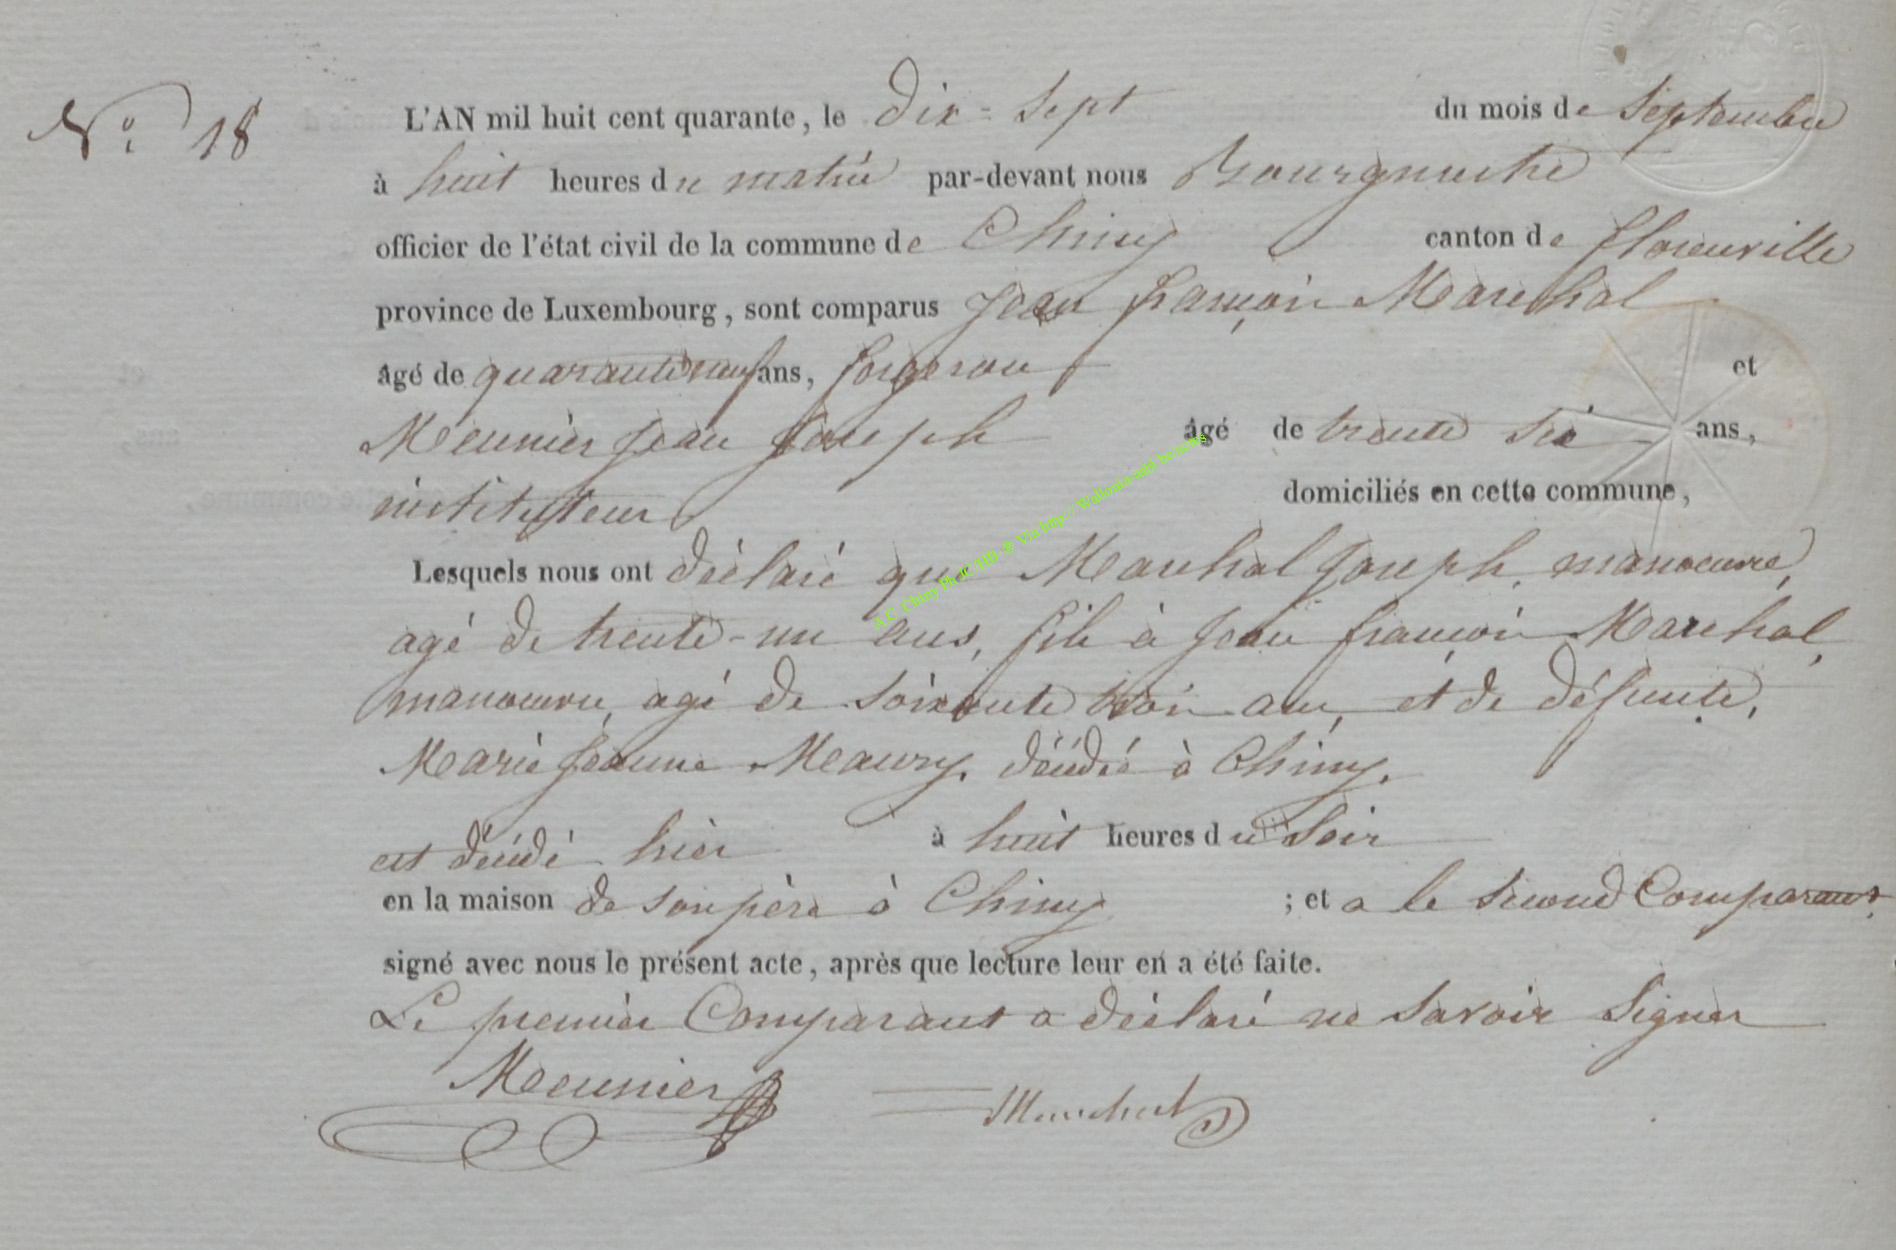 N.º 18
L'AN mil huit cent quarante, le dix-sept du mois de septembre
à huit heures du matin par-devant nous Bourgmestre
officier de l'état civil de la commune de Chiny canton de florenville
province de Luxembourg, sont comparus Jean françois Marechal
âgé de quaranteneuf ans, forgeron et
Meunier Jean Joseph âgé de trente six ans,
instituteur domiciliés en cette commune,
Lesquels nous ont déclaré que Marechal Joseph, manoeuvre,
agé de trente-un ans, fils à Jean françois Marechal,
manoeuvre, agé de soixante trois ans, et de défunte,
Marie Jeanne Maury, décédée à Chiny.
est décédé hier à huit heures du soir
en la maison de son père à Chiny ; et a le second Comparant
signé avec nous le présent acte, après que lecture leur en a été faite.
Le premier Comparant a déclaré ne savoir signer
Meunier Marechal